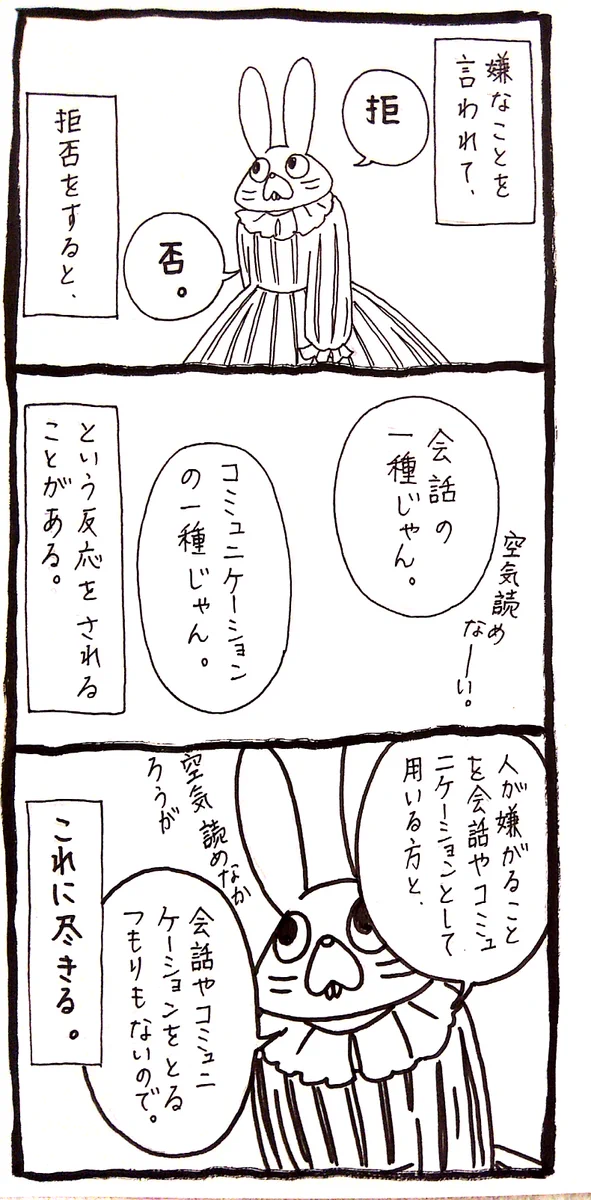 嫌なことを
言われて、
拒
否。
拒否をすると、
会話の
一種じゃん。
空気読め
なーい。
コミュニケーション
の一種じゃん。
という反応をされる
ことがある。
人が嫌がること
を会話やコミュ
ニケーションとして
用いる方と、
空気読めなか
ろうが
会話やコミュニ
ケーションをとる
つもりもないので。
これに尽きる。